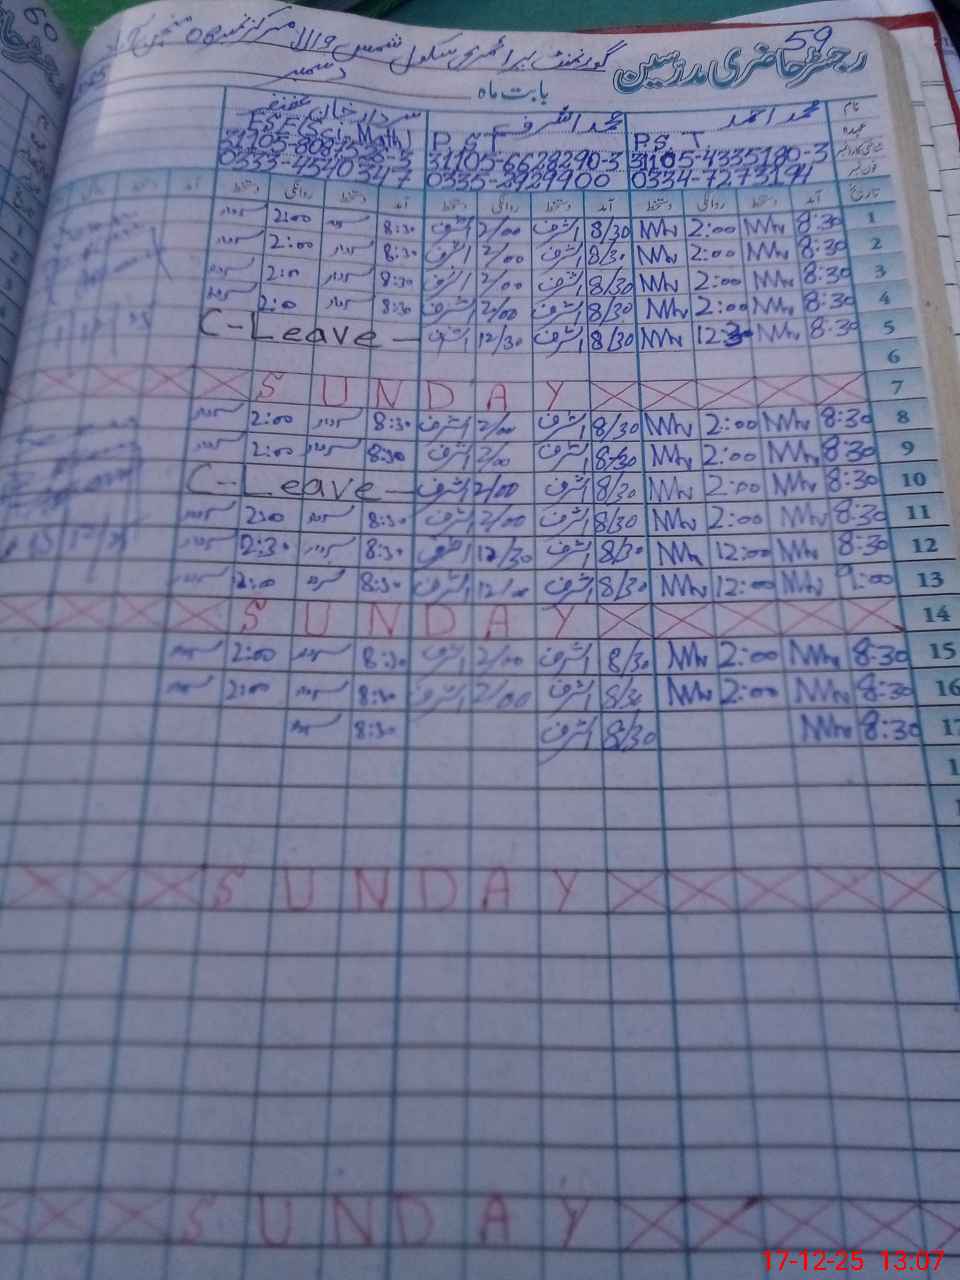 59
رجسٹر حاضری مدرسین
گورنمنٹ پرائمری سکول شمس والا مرکز نمبر 08
بابت ماہ دسمبر
نام محمد احمد محمد اشرف سردار خان غضنفر
عہدہ P.S.T P S T ESE (Sci, Math)
31105-4335180-3 31105-6628290-3
0334-7273194 0335-2929900 0333-4540347
تاریخ آمد دستخط روانگی دستخط آمد دستخط روانگی دستخط آمد دستخط روانگی دستخط
1 8:30 2:00 8/30 اشرف 2/00 اشرف 8:30 سردار 2:00 سردار
2 8:30 2:00 8/30 اشرف 2/00 اشرف 8:30 سردار 2:00 سردار
3 8:30 2:00 8/30 اشرف 2/00 اشرف 8:30 سردار 2:00 سردار
4 8:30 2:00 8/30 اشرف 2/00 اشرف 8:30 سردار 2:00 سردار
5 8:30 8/30 اشرف 12/30 اشرف C-Leave-
6
7 SUNDAY
8 8:30 2:00 8/30 اشرف 2/00 اشرف 8:30 سردار 2:00 سردار
9 8:30 2:00 8/30 اشرف 2/00 اشرف 8:30 سردار 2:00 سردار
10 8:30 2:00 8/30 اشرف 2/00 اشرف C-Leave-
11 8:30 2:00 8/30 اشرف 2/00 اشرف 8:30 سردار 2:00 سردار
12 8:30 12:00 8/30 اشرف 12/30 اشرف 8:30 سردار 2:30 سردار
13 9:00 12:00 8/30 اشرف 12/00 اشرف 8:30 سردار 2:00 سردار
14 SUNDAY
15 8:30 2:00 8/30 اشرف 2/00 اشرف 8:30 سردار 2:00 سردار
16 8:30 2:00 8/30 اشرف 2/00 اشرف 8:30 سردار 2:00 سردار
17 8:30 8/30 اشرف 8:30 سردار
SUNDAY
SUNDAY
17-12-25 13:07